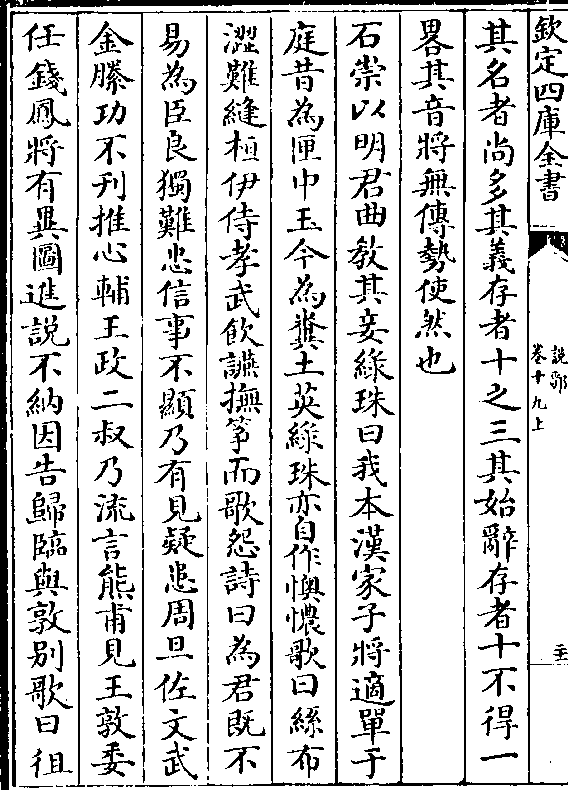 欽定四庫全書
說郛
卷十九上
其名者尚多其義存者十之三其始辭存者十不得一
畧其音將無傳勢使然也
石崇以明君曲教其妾綠珠曰我本漢家子將適單于
庭昔為匣中玉今為糞土英綠珠亦自作懊憹歌曰絲布
澀難縫桓伊侍孝武飲讌撫箏而歌怨詩曰為君既不
易為臣良獨難忠信事不顯乃有見疑患周旦佐文武
金縢功不刊推心輔王政二叔乃流言熊甫見王敦委
任錢鳳將有異圖進説不納因告歸臨與敦别歌曰徂